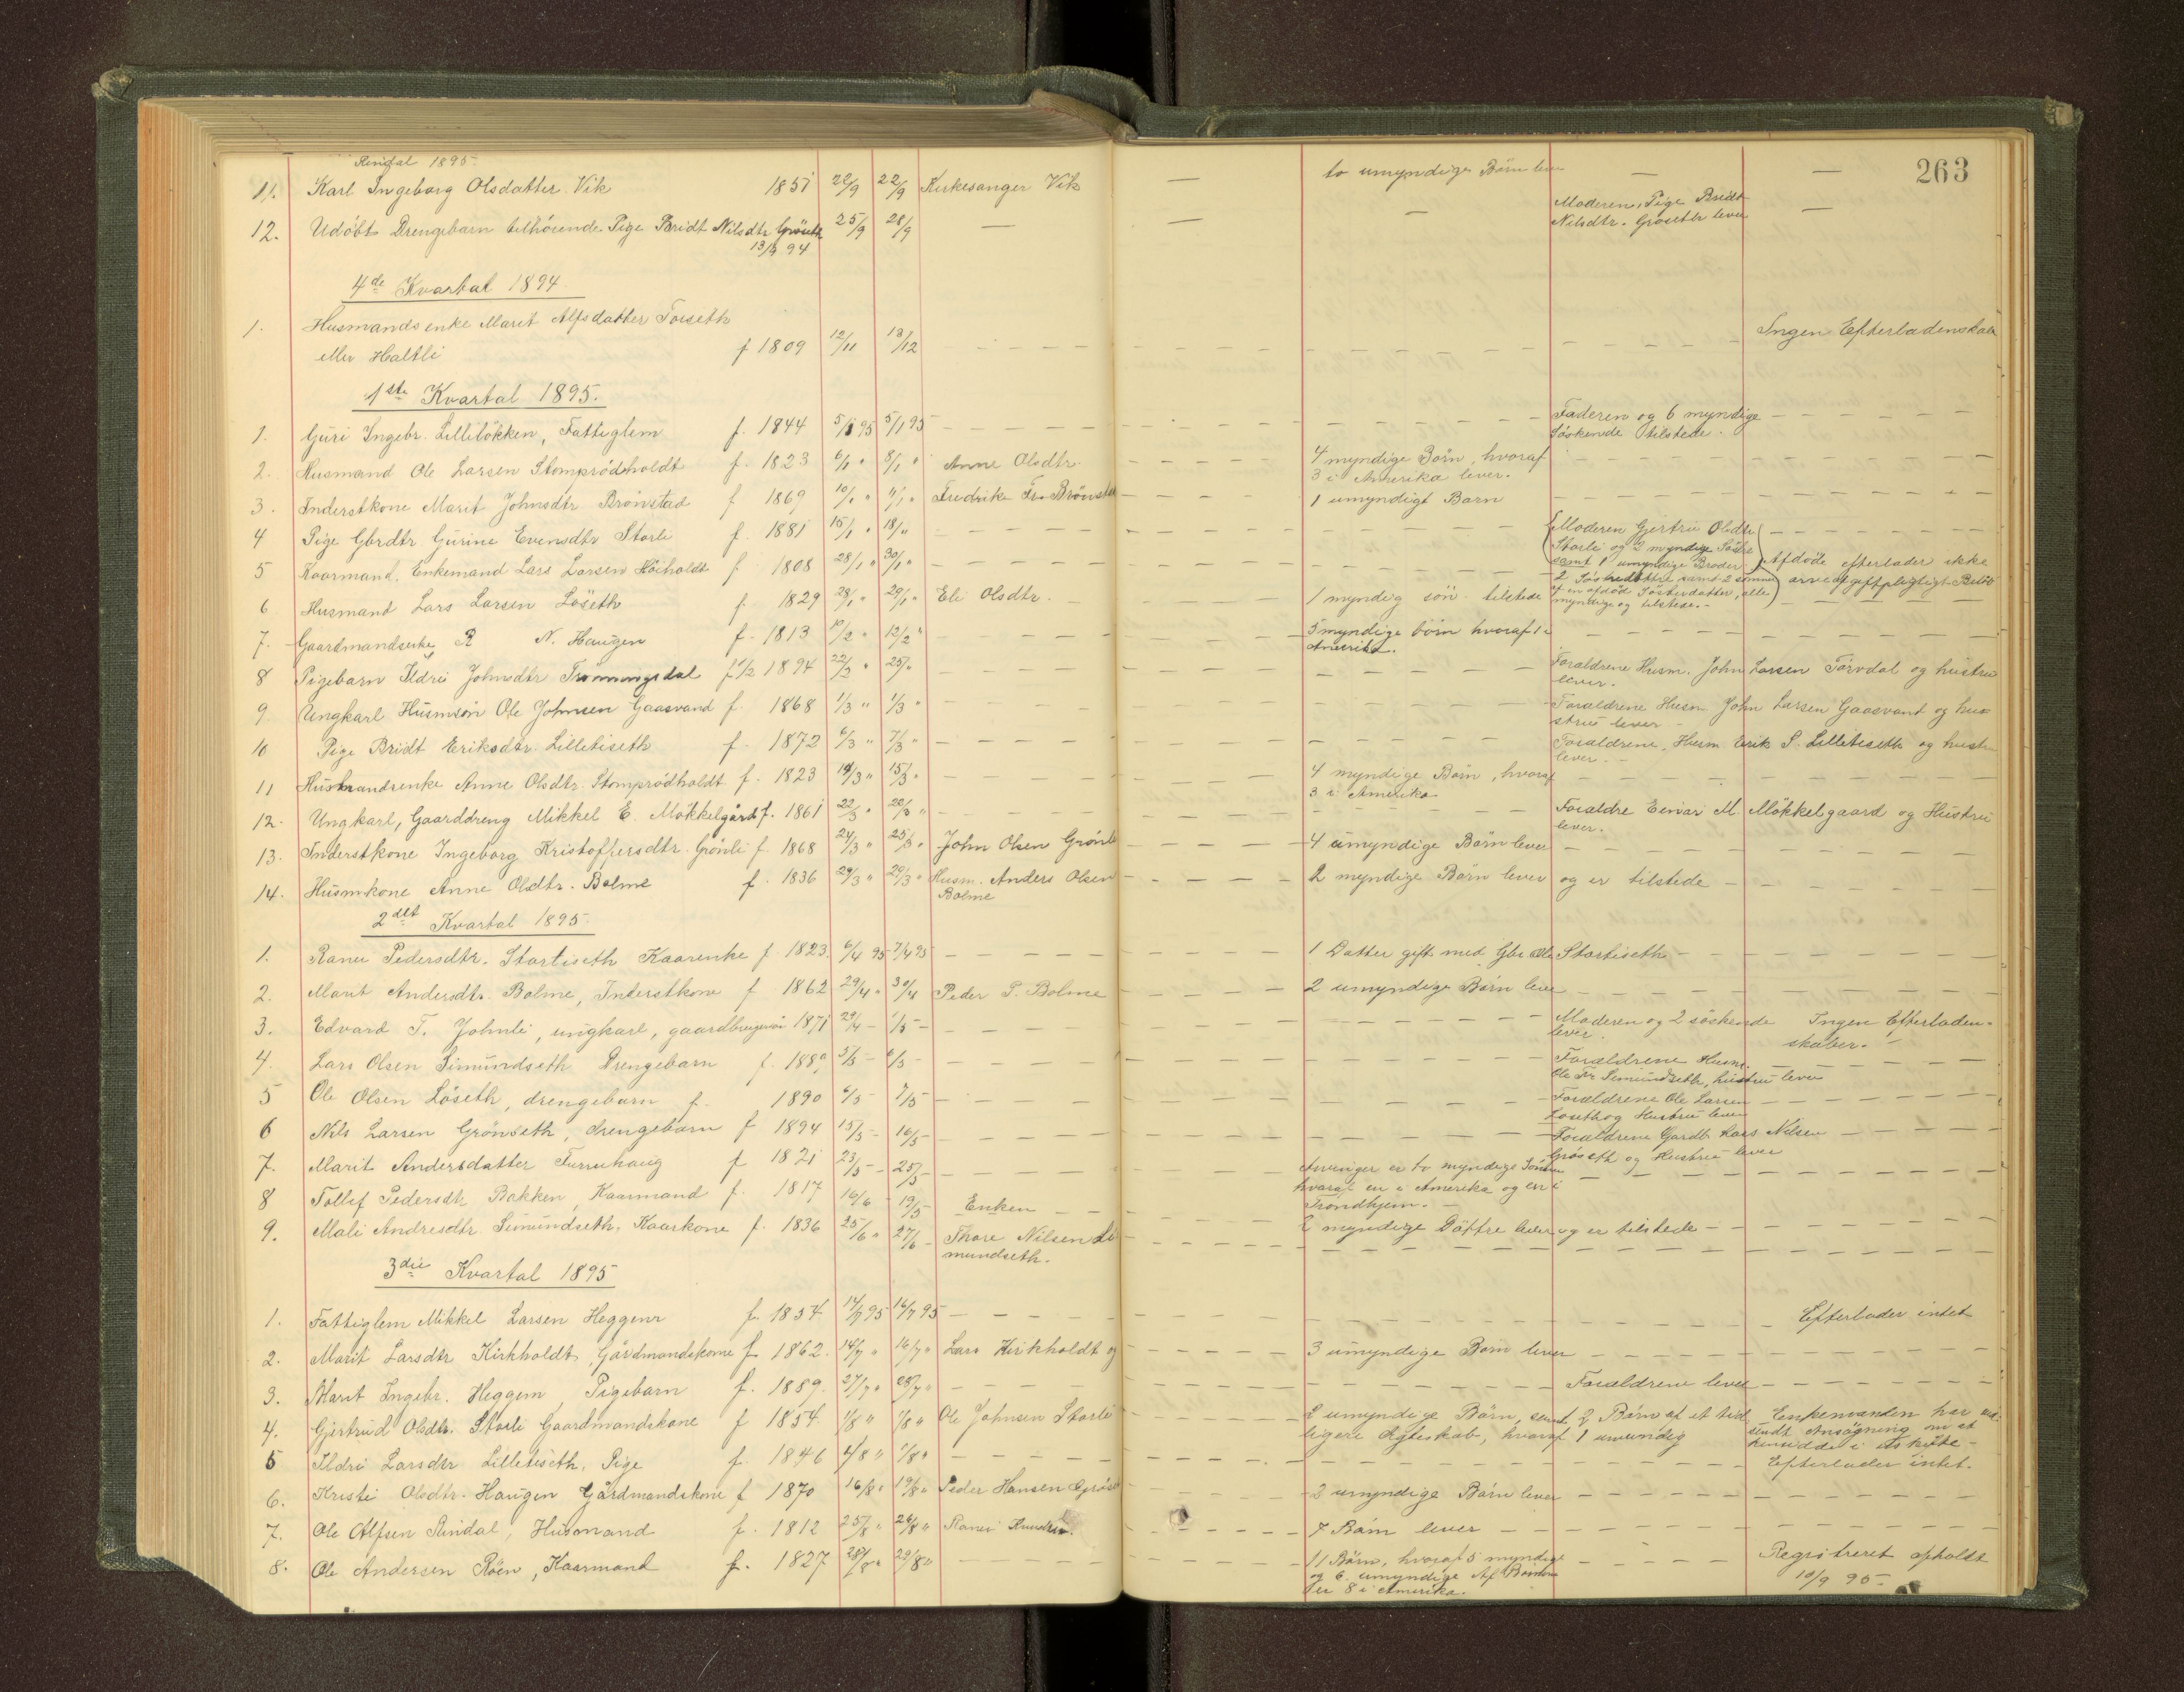 Rindal 1895.
263
11. Karl Ingeborg Olsdatter Vik 1851 22/9 22/9 Kirkesanger Vik — to umyndige Börn lever — —
12. Udöbt Drengebarn tilhörende Pige Bridt Nilsdtr Gröseth 25/9 28/9 — — — Moderen, Pige Bridt
13/9 94 Nilsdtr. Gröseth lever —
4de Kvartal 1894
1. Husmandsenke Marit Alfsdatter Torseth
eller Haltli f 1809 12/11 13/12 Ingen Efterladenskab
1ste Kvartal 1895.
1. Guri Ingebr. Lillelökken, Fattiglem f. 1844 5/1 95 5/1 95 Faderen og 6 myndige
Söskende tilstede.
2. Husmand Ole Larsen Stomprödholdt f. 1823 6/1 " 8/1 " Anne Olsdtr. 4 myndige Börn, hvoraf
3 i Amerika lever.
3. Inderstkone Marit Johnsdtr Brönstad f 1869 10/1 " 11/1 " Fredrik Fr. Brönstad 1 umyndigt Barn
4 Pige Gbrdtr Gurine Evensdtr Storli f. 1881 15/1 " 18/1 " Moderen Gjertru Olsdtr
Storli og 2 myndige Söstre
samt 1 umyndige Broder
5 Kaarmand. Enkemand Lars Larsen Höiholdt f 1808 28/1 " 30/1 " 2 Söskedöttre samt 2 sönner
af en afdöd Sösterdatter, alle
myndige og tilstede. Afdöde efterlader ikke
arveafgiftpligtigt Belöb
6 Husmand Lars Larsen Löseth f. 1829 28/1 " 29/1 " Eli Olsdtr. 1 myndig sön tilstede
7. Gaardmandsenke R N. Haugen f. 1813 10/2 " 12/2 " 5 myndige börn hvoraf 1 i
Amerika.
8 Pigebarn Ildri Johnsdtr Trönningsdal f 1/2 1894 22/2 " 25/" Foraldrene Husm. John Larsen Torvdal og hustru
lever.
9. Ungkarl Husmsön Ole Johnsen Gaasvand f. 1868 1/3 " 1/3 " Foraldrene Husm John Larsen Gaasvand og hu=
stru lever
10 Pige Bridt Eriksdtr. Lilletiseth f. 1872 6/3 " 7/3 " Foraldrene, Husm Erik S. Lilletiseth og hustru
lever.
11 Husmandsenke Anne Olsdtr. Stomprödholdt f. 1823 14/3 " 15/3 " 4 myndige Börn, hvoraf
3 i Amerika
12. Ungkarl, Gaarddreng Mikkel E. Mökkelgård f. 1861 22/3 " 22/3 " Foraldre Eenar M Mökkelgaard og Hustru
lever.
13. Inderstkone Ingeborg Kristoffersdtr. Grönli f 1868 24/3 " 25/3 " John Olsen Grönli 4 umyndige Börn lever
14. Husmkone Anne Olsdtr. Bolme f. 1836 29/3 " 29/3 " Husm. Anders Olsen
Bolme 2 myndige Börn lever og er tilstede
2det Kvartal 1895.
1. Ranei Pedersdtr. Stortiseth Kaarenke f. 1823. 6/4 95 7/4 95 1 Datter gift med Gbr Ole Stortiseth
2. Marit Andersdtr. Bolme, Inderstkone f 1862 29/4 " 30/4 Peder P. Bolme 2 umyndige Börn lever
3. Edvard T. Johnli, ungkarl, gaardbrugersön 1871 29/4 – 1/5 – Moderen og 2 söskende
lever. Ingen Efterladen-
skaber.
4. Lars Olsen Simundseth Drengebarn f. 1889 5/5 – 6/5 – Foraldrene Husm.
Ole Tr Simundseth, hustru lever
5 Ole Olsen Löseth, drengebarn f. 1890 6/5 – 7/5 – Foraldrene Ole Larsen
Loseth og Hustru lever
6 Nils Larsen Grönseth, drengebarn f 1894 15/5 – 16/5 – Foraldrene Gardb Lars Nilsen
Gröseth og Hustru lever
7. Marit Andersdatter Furruhaug f 1821 23/5 – 25/5 – Arvinger er to myndige Sönner
hvoraf en i Amerika og en i
Trondhjem.
8 Tollef Pedersdtr. Bakken, Kaarmand f. 1817 16/6 – 19/5 Enken
9. Mali Andresdtr. Simundseth, Kaarkone f. 1836 25/6 " 27/6 – Thore Nilsen Si
mundseth. 2 myndige Döttre lever og er tilstede
3die Kvartal 1895
1. Fattiglem Mikkel Larsen Heggem f. 1854 14/7 95 16/7 95 Efterlader intet
2. Marit Larsdtr Kirkholdt, Gårdmandskone f 1862. 14/7 " 16/7 " Lars Kirkholdt og 3 umyndige Börn lever
3. Marit Ingebr. Heggem, Pigebarn f. 1889. 27/7 " 28/7 " Foraldrene lever
4. Gjertrud Olsdtr. Storli Gaardmandskone f 1854 1/8 " 1/8 " Ole Johnsen Storli 2 umyndige Börn, samt 2 Börn af et tid-
ligere Ægteskab, hvoraf 1 umyndig Enkemanden har ind
sendt Ansögning om at
hensidde i uskifte
5 Ildri Larsdtr Lilletiseth. Pige f. 1846 4/8 " 1/8 " Efterlader intet.
6. Kristi Olsdtr. Haugen Gårdmandskone f 1870 16/8 " 19/8 " Peder Hansen 2 umyndige Börn lever
7. Ole Alfsen Rindal, Husmand f. 1812 25/8 " 26/8 " Ranei 7 Börn lever
8. Ole Andersen Röen, Kaarmand f. 1827 28/8 " 29/8 " 11 Börn, hvoraf 5 myndige
og 6 umyndige Af Börnene
er 8 i Amerika. Registreret afholdt
10/9 95